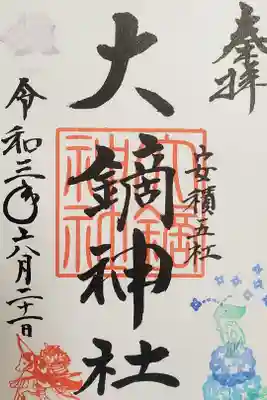 奉拝
安積五社
大鏑神社
令和三年六月二十一日